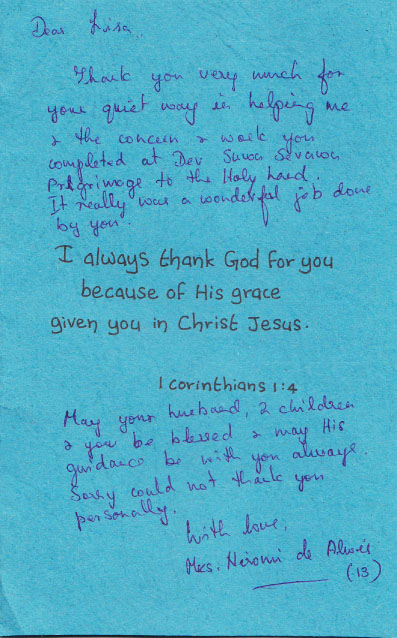 Dear Lisa,
Thank you very much for
your quiet way in helping me
& the concern & work you
completed at Dev Suwa Sevawa
Pilgrimage to the Holy Land.
It really was a wonderful job done
by you.
I always thank God for you
because of His grace
given you in Christ Jesus.
1 corinthians 1:4
May your husband, 2 children
& you be blessed & may His
guidance be with you always.
Sorry could not thank you
personally.
With love,
Mrs. Hiromi de Alwis
(13)